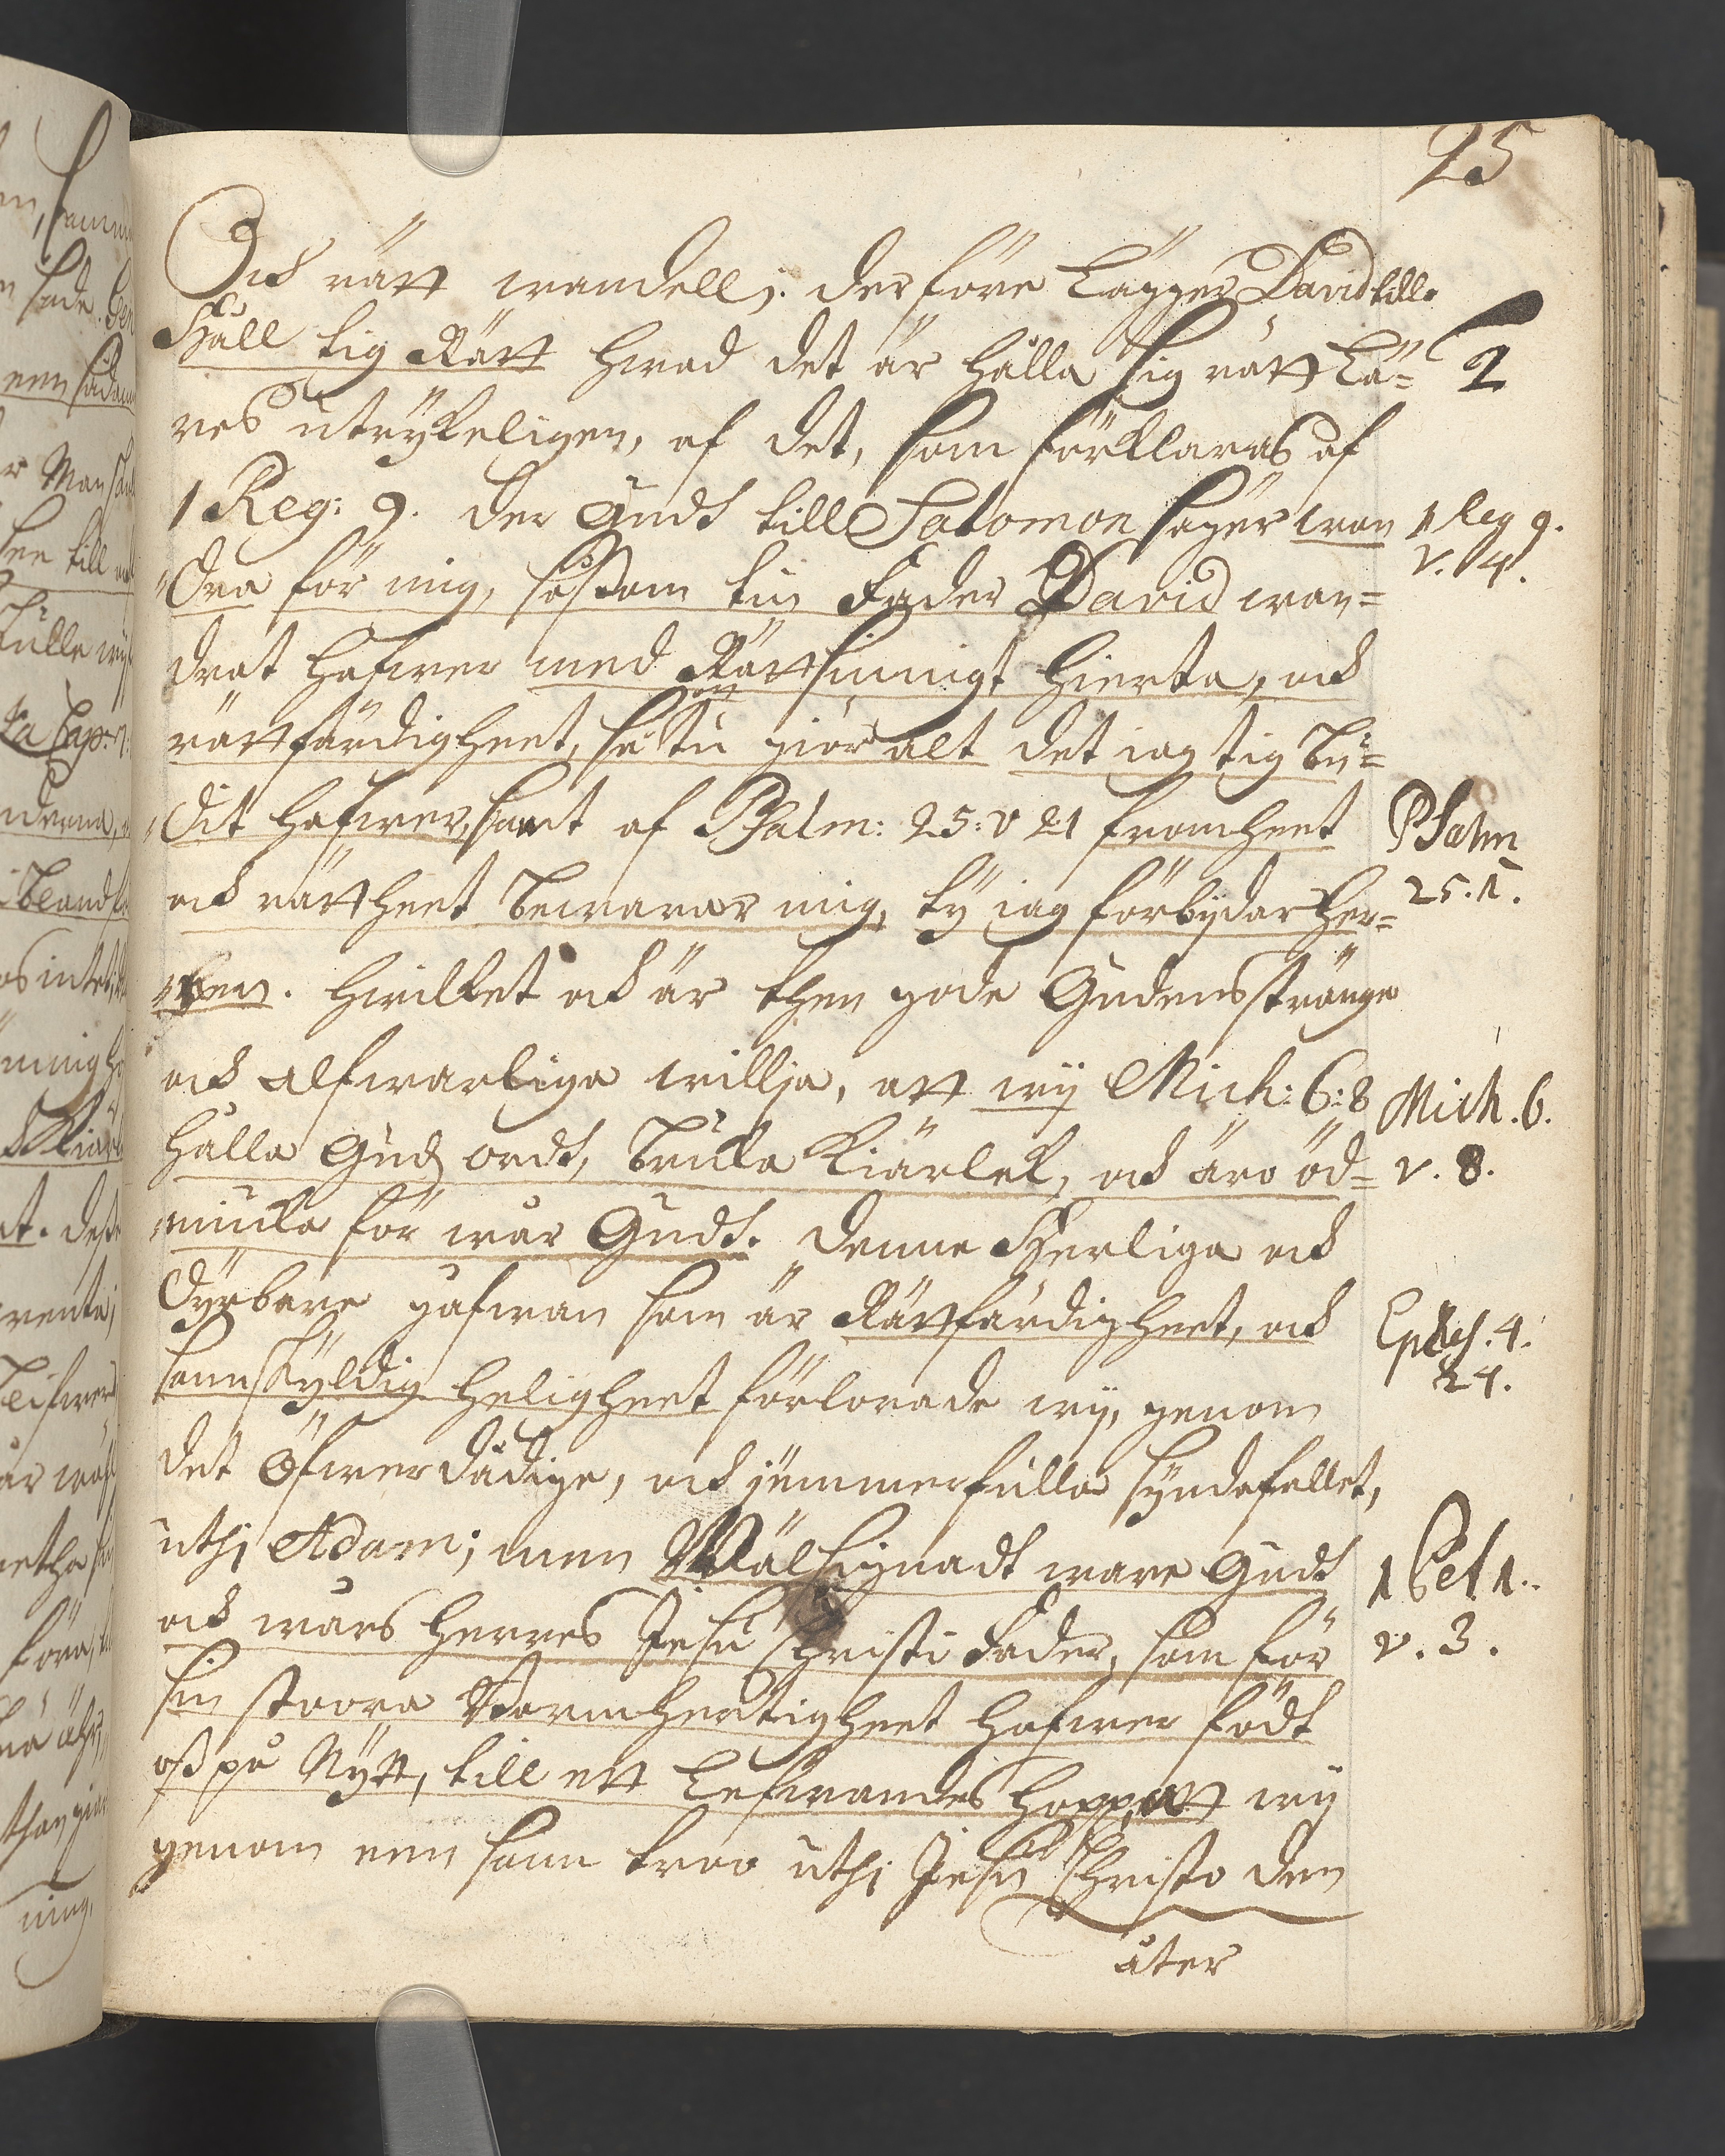 25
Och rätt wandell; derföre Lägger David till.
Håll tig Rätt hwad det är hålla sig rätt Lä=
2
res utrÿkeligen, af det, som förklaras af
1 Reg: 9. der Gudh till Salomon säger wan
1 Reg 9.
v. 4.
dra för mig, såssom tin Fader David wan=
drat hafwer med Rättsinnigt hierta, och
rättfärdigheet, så tu giör alt det iag tig bu=
dit hafwer, samt af Psalm: 25: v 21 fromheet
Psalm
och rättheet bewarar mig, tÿ iag förbÿdar Her=
25. 1.
ren. Hwilket och är then gode Gudens stränge
och alfwarliga willja, att wij Mich: 6: 8
Mich. 6.
hålla Gudz ordt, bruka Kiärlek, och äro öd=
v. 8.
miuka för wår Gudt. Denne Herliga och
dÿrbara gåfwan som är Rättfärdigheet, och
Ephes. 4.
24.
sannskÿldig heligheet förlorade wij, genom
det öfwerdådige, och jemmerfulla sÿndafallet,
uthi Adam; men Wälsignadt ware Gudt
1 Pet 1.
och wårs Herres Jesu Christi Fader, som för
v. 3.
sin stoora Barmhertigheet hafwer födt
oss på Nÿtt, till ett Lefwandes hopp, att wij
genom een sann troo uthi Jesu Christo den
åter